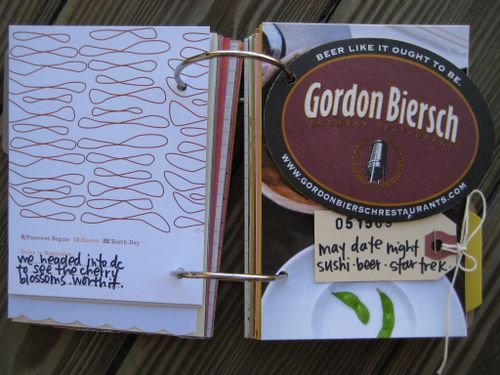 9/Passover Begins 12/Easter 22/Earth Day
we headed into dc
to see the cherry
blossoms. worth it.
BEER LIKE IT OUGHT TO BE.
Gordon Biersch
BREWERY RESTAURANT
WWW.GORDONBIERSCHRESTAURANTS.COM
may date night
sushi · beer · star trek.